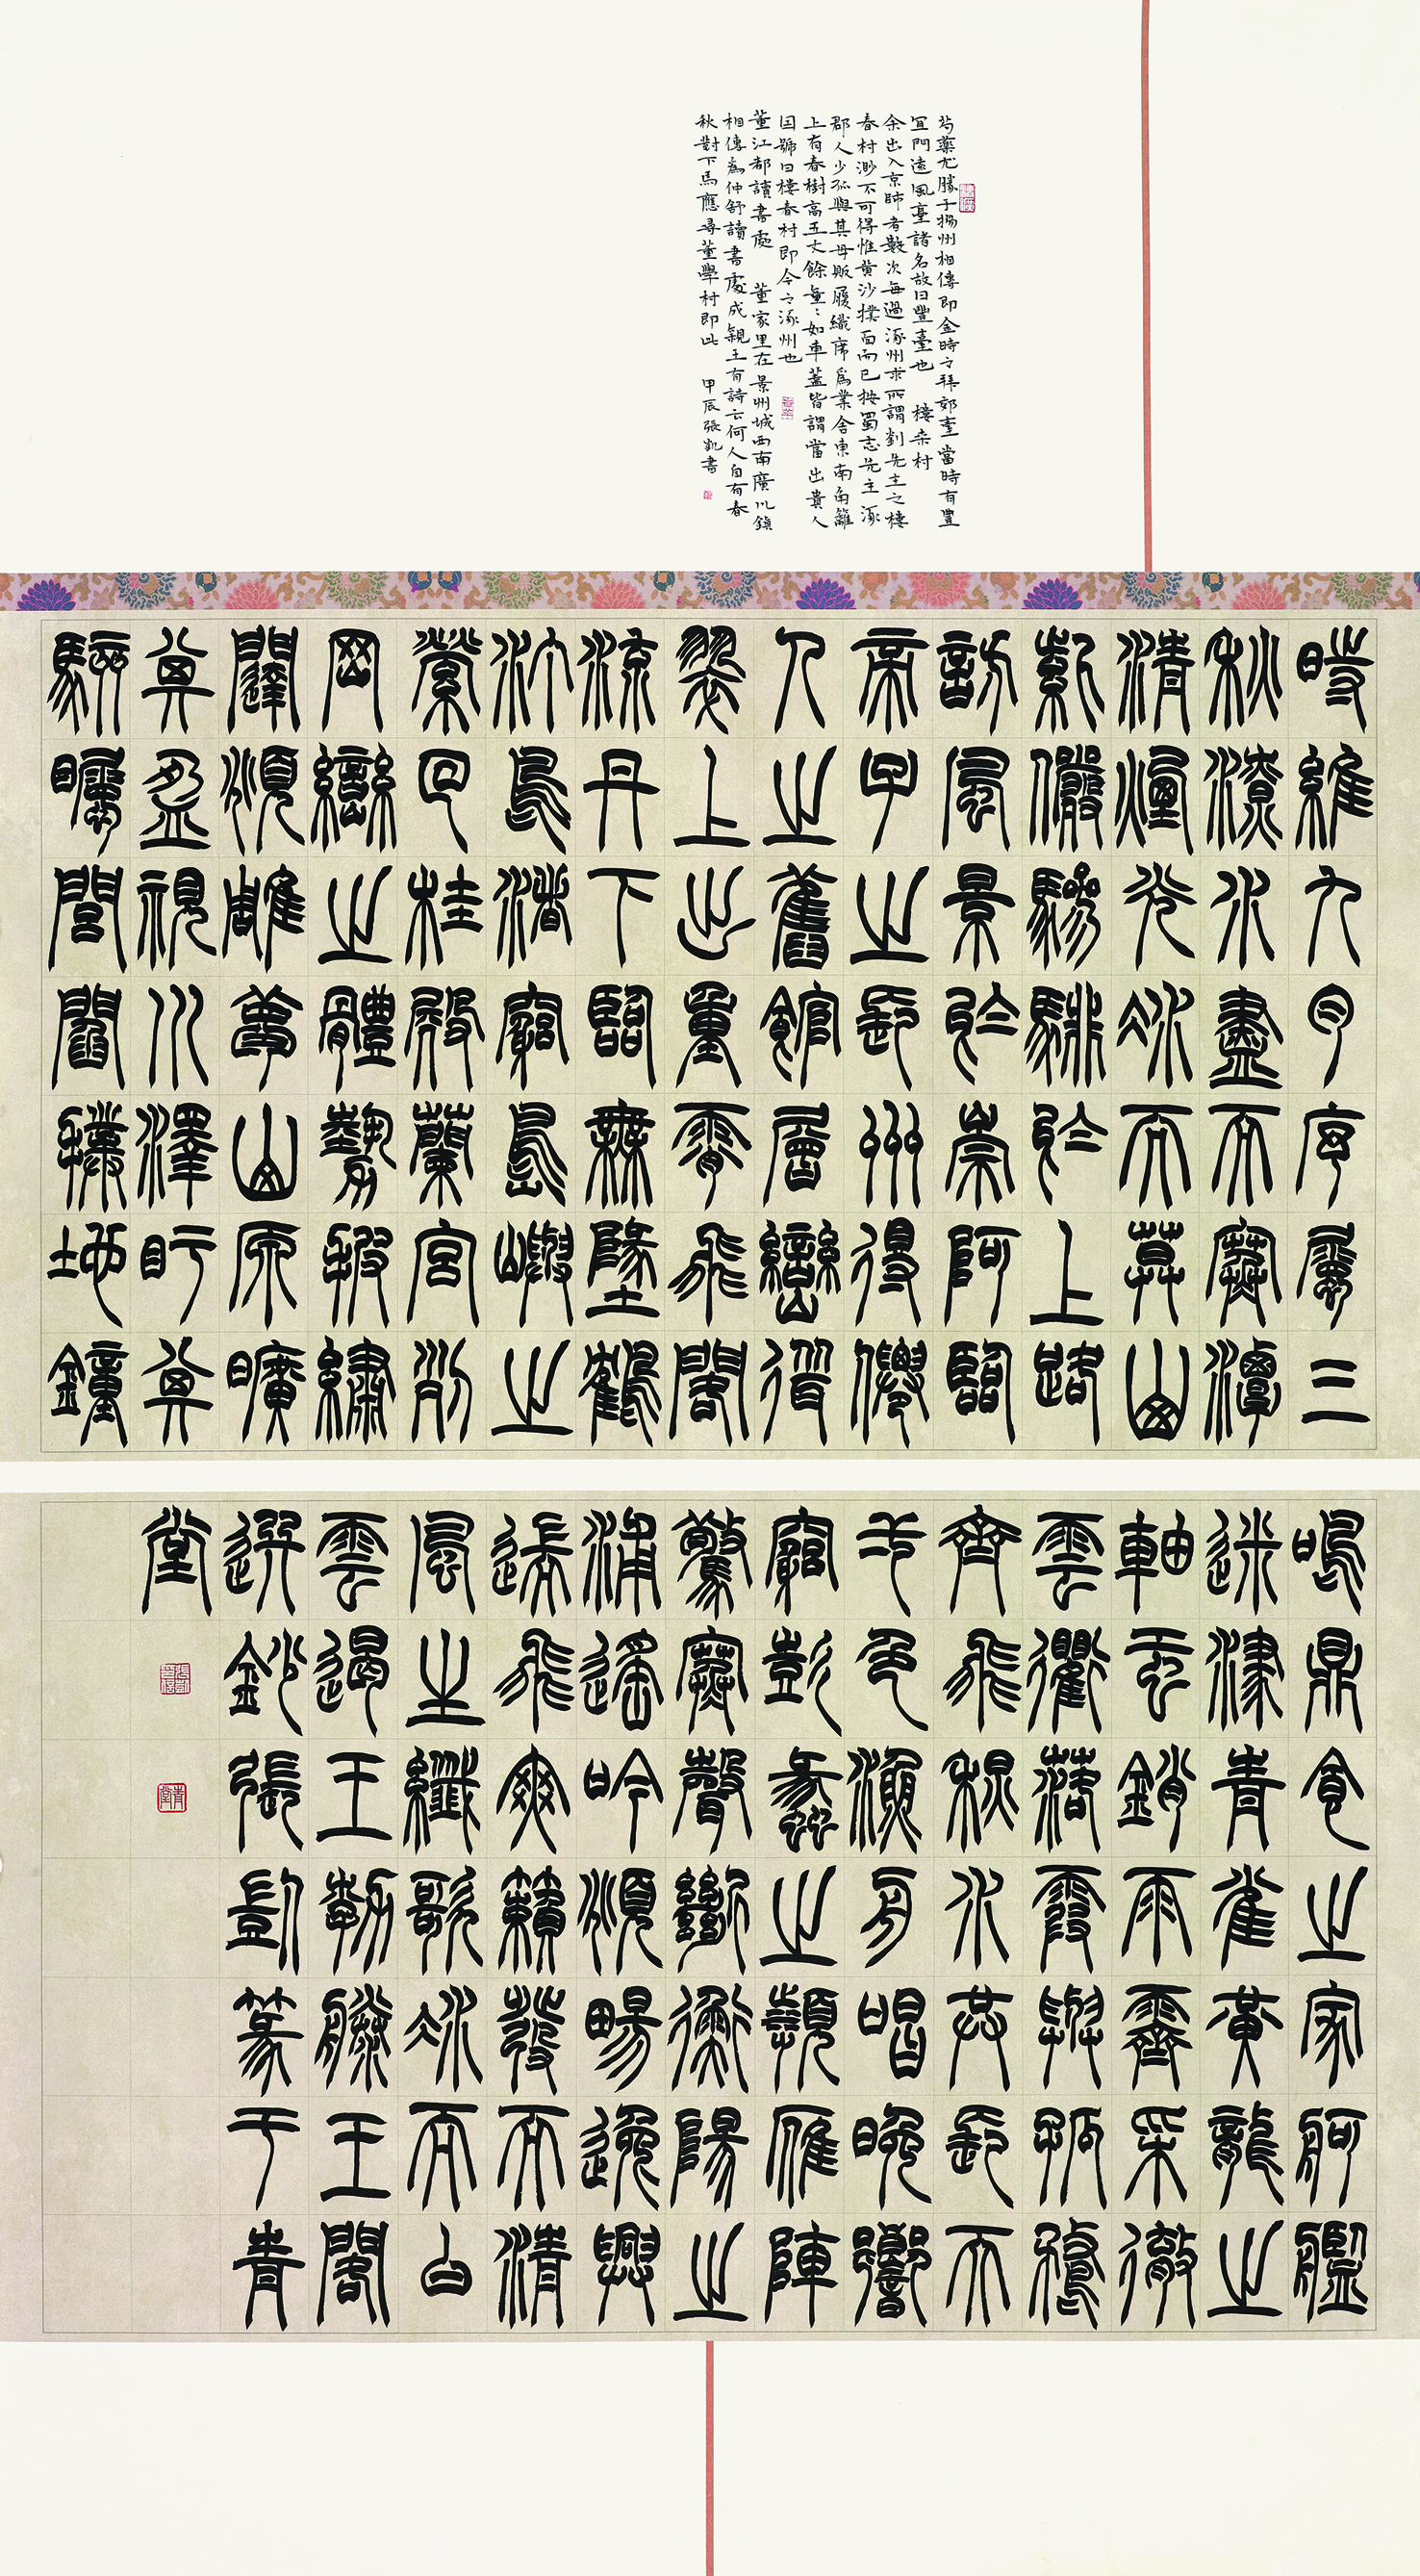 芍藥尤勝于揚州相傳即金時之拜郊臺當時有豐
宜門遠風臺諸名故曰豐臺也 樓桑村
余出入京師者數次每過涿州求所謂劉先主之樓
桑村渺不可得惟黃沙撲面而已按蜀志先主涿
郡人少孤與其母販履織席爲業舍東南角籬
上有桑樹高五丈餘童童如車蓋皆謂當出貴人
因號曰樓桑村即今之涿州也
董江都讀書處 董家里在景州城西南廣川鎮
相傳爲仲舒讀書處成親王有詩云何人自有春
秋對下馬應尋董學村即此 甲辰張凱書
時維九月序屬三
秋潦水盡而寒潭
清煙光凝而暮山
紫儼驂騑於上路
訪風景於崇阿臨
帝子之長洲得仙
人之舊館層巒聳
翠上出重霄飛閣
流丹下臨無地鶴
汀鳧渚窮島嶼之
縈回桂殿蘭宮列
岡巒之體勢披繡
闥俯雕甍山原曠
其盈視川澤盱其
駭矚閭閻撲地鐘
鳴鼎食之家舸艦
迷津青雀黃龍之
軸雲銷雨霽彩徹
雲衢落霞與孤鶩
齊飛秋水共長天
一色漁舟唱晚響
窮彭蠡之濱雁陣
驚寒聲斷衡陽之
浦遙吟俯暢逸興
遄飛爽籟發而清
風生纖歌凝而白
雲遏王勃滕王閣
選鈔張凱篆于青
堂